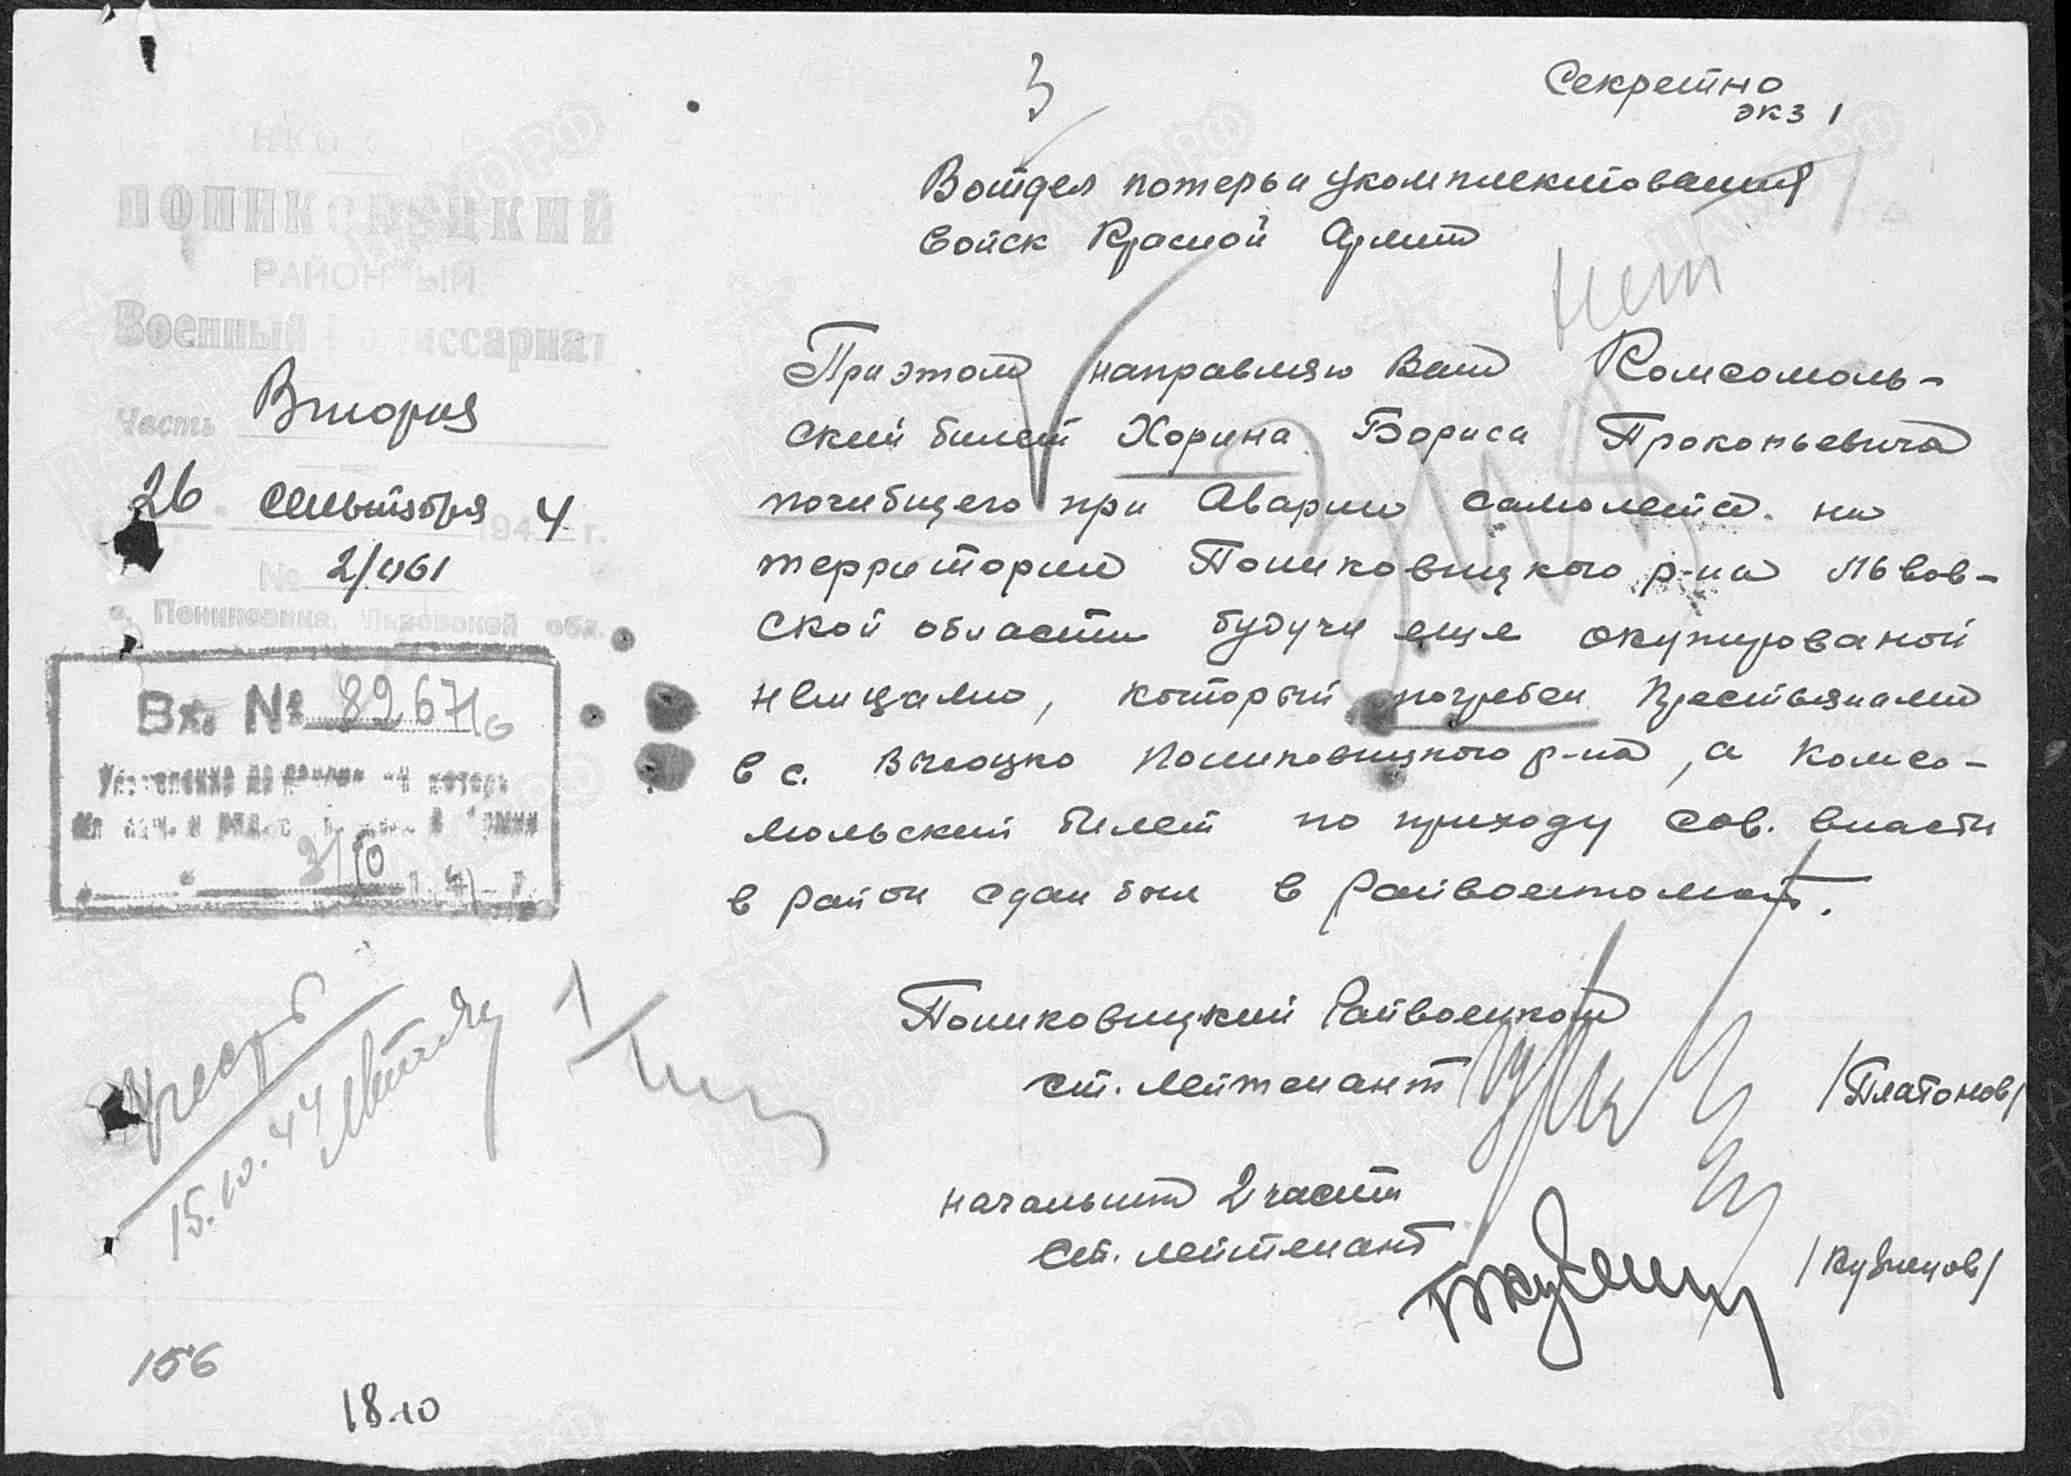 3
Секретно
экз 1
В отдел потерь и укомплектования
войск Красной Армии
нет
НКО
ПОНИКОВИЦКИЙ
РАЙОННЫЙ
Военный Комиссариат
Часть Вторая
26 сентября 1944 г.
№
с. Пониковица, Львовской обл.
При этом направляю Вам Комсомоль-
ский билет Хорина Бориса Прокопьевича
погибшего при Аварии самолета на
территории Пониковицкого р-на Львов-
ской области будучи еще окупированой
немцами, который погребен Крестьянами
в с. Пониковицкого р-на, а комсо-
мольский билет по приходу сов. власти
в район сдан был в райвоенкомат.
Вх. № 82671
Управление по потерь
3/10
15.10.44
Пониковицкий Райвоенком
ст. лейтенант /Платонов/
начальник 2 части
ст. лейтенант /Кузнецов/
156
18.10